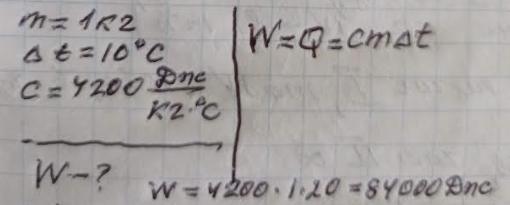 m = 1кг
Δt = 10°C
C = 4200 Дж/кг·°C
W - ?
W = Q = cmΔt
W = 4200 · 1 · 20 = 84000 Дж